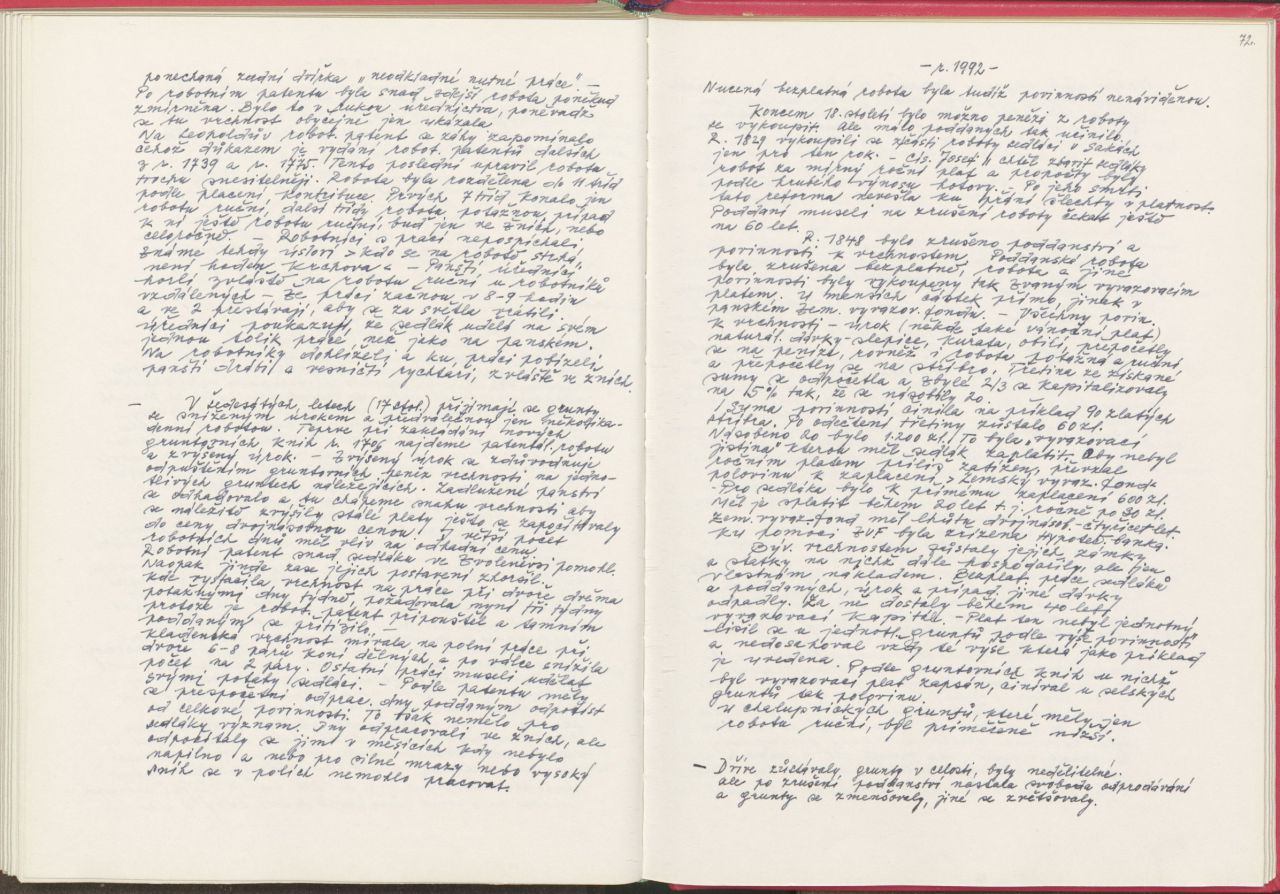 ponechaná zadní dvířka „neodkladné nutné práce." –
Po robotním patentu byla snad zdejší robota poněkud
zmírněna. Bylo to v rukou úřednictva, poněvadž
se tu vrchnost obyčejně jen ukázala.
Na Leopoldův robot. patent se záhy zapomínalo
čehož důkazem je vydání robot. patentů dalších
z r. 1739 a r. 1775. Tento poslední upravil robotu
trochu snesitelněji. Robota byla rozdělena do 11 tříd
podle placení kontribuce. Prvých 7 tříd konalo jen
robotu ruční, další třídy robotu potažnou, případ
k ní ještě robotu ruční, buď jen ve žních, nebo
celoročně. – Robotníci s prací nepospíchali,
známe tehdy úsloví > kdo se na robotě strhá
není hoden krchova < – Panští úředníci
horlí zvláště na robotu ruční u robotníků
vzdálených – že prácí začnou v 8–9 hodin
a ve 2 přestávají, aby se za světla vrátili.
Úředníci poukazují, že sedlák udělá na svém
jednou tolik práce než jako na panském.
Na robotníky dohlíželi a ku práci pobízeli
panští drábi a vesničtí rychtáři, zvláště ve žních.
– V šedesátých letech (17 stol.) přijímají se grunty
se sníženým úrokem a předválečnou jen několika-
denní robotou. Teprve při zakládání nových
gruntovních knih r. 1706 najdeme patentál. robotu
a zvýšený úrok. – Zvýšený úrok se zdůvodňuje
odpuštěním gruntovních peněz vrchnosti na jedno-
tlivých gruntech náležejících. Zadlužené panství
se odhadovalo a tu chápeme snahu vrchnosti aby
se náležitě zvýšily stálé platy ježto se započítávaly
do ceny dvojnásobnou cenou. I větší počet
robotních dnů měl vliv na odhadní cenu.
Robotní patent snad sedláku ve Zvoleněvsi pomohl.
Naopak jinde zase jejich postavení zhoršil.
kde vystačila vrchnost na práce při dvoře dvěma
potažnými dny týdně, požadovala nyní tři týdny
protože je robot. patent připouštěl a tamním
poddaným se přitížilo. –
Kladenská vrchnost mívala na polní práce při
dvoře 6–8 párů koní dělných, a po válce snížila
počet na 2 páry. Ostatní práci museli udělat
svými potahy sedláci. – Podle patentu měly
se přespočetní odprac. dny poddaným odpočíst
od celkové povinnosti. To však nemělo pro
sedláky význam. Dny odpracovali ve žních, ale
odpočítaly se jim v měsících kdy nebylo
napilno a nebo pro silné mrazy nebo vysoký
sníh se v polích nemohlo pracovat.
72.
– r. 1992 –
Nucená bezplatná robota byla tudíž povinností nenáviděnou.
Koncem 18. století bylo možno penězi z roboty
se vykoupit. Ale málo poddaných tak učinilo.
R. 1829 vykoupili se zčásti roboty sedláci v Sakách
jen pro ten rok. – Cís. Josef II chtěl zbavit sedláky
robot za mírný roční plat a propočty byly
podle hrubého výnosu hotovy. – Po jeho smrti
tato reforma nevešla ku přání šlechty v platnost.
Poddaní museli na zrušení roboty čekat ještě
na 60 let.
R. 1848 bylo zrušeno poddanství a
povinnosti k vrchnostem. Poddanská robota
byla zrušena bezplatně, robota a jiné
povinnosti byly vykoupeny tak zvaným vyvazovacím
platem. U menších částek přímo, jinak v
panském zem. vyvazov. fondu. – Všechny povin.
k vrchnosti – úrok (někde také vánoční plat)
naturál. dávky – slepice, kuřata, obilí, přepočetly
se na peníze, rovněž i robota potažná a ruční
a přepočetly se na stříbro. Třetina ze získané
sumy se odpočetla a zbylé 2/3 se kapitalizovaly
na 5% tak, že se násobily 20.
Suma povinností činila na příklad 90 zlatých
stříbra. Po odečtení třetiny zůstalo 60 zl.
Násobeno 20 bylo 1.200 zl. To byla „vyvazovací
jistina" kterou měl sedlák zaplatit. Aby nebyl
ročním platem příliš zatížen, převzal
polovinu k zaplacení > Zemský vyvaz. fond <
Pro sedláka bylo k přímému zaplacení 600 zl.
Měl je splatit během 20 let t.j. ročně po 30 zl.
Zem. vyvaz. fond měl lhůtu dvojnásob. čtyřicet let.
Ku pomoci ZVF byla zřízena Hypoteč. banka.
Býv. vrchnostem zůstaly jejich zámky
a statky na nichž dále hospodařily, ale jen
vlastním nákladem. Bezplat. práce sedláků
a poddaných, úrok a případ. jiné dávky
odpadly. Za ně dostaly během 40 let
vyvazovací kapitál. – Plat ten nebyl jednotný
lišil se u jednotl. gruntů podle výše povinností
a nedosahoval vždy té výše která jako příklad
je uvedena. Podle gruntovních knih u nichž
byl vyvazovací plat zapsán, činíval u selských
gruntů tak polovinu.
U chalupnických gruntů, které měly jen
robotu ruční, byl přiměřeně nižší.
– Dříve zůstávaly grunty v celosti, byly nedělitelné.
ale po zrušení poddanství nastala svoboda odprodávání
a grunty se zmenšovaly, jiné se zvětšovaly.